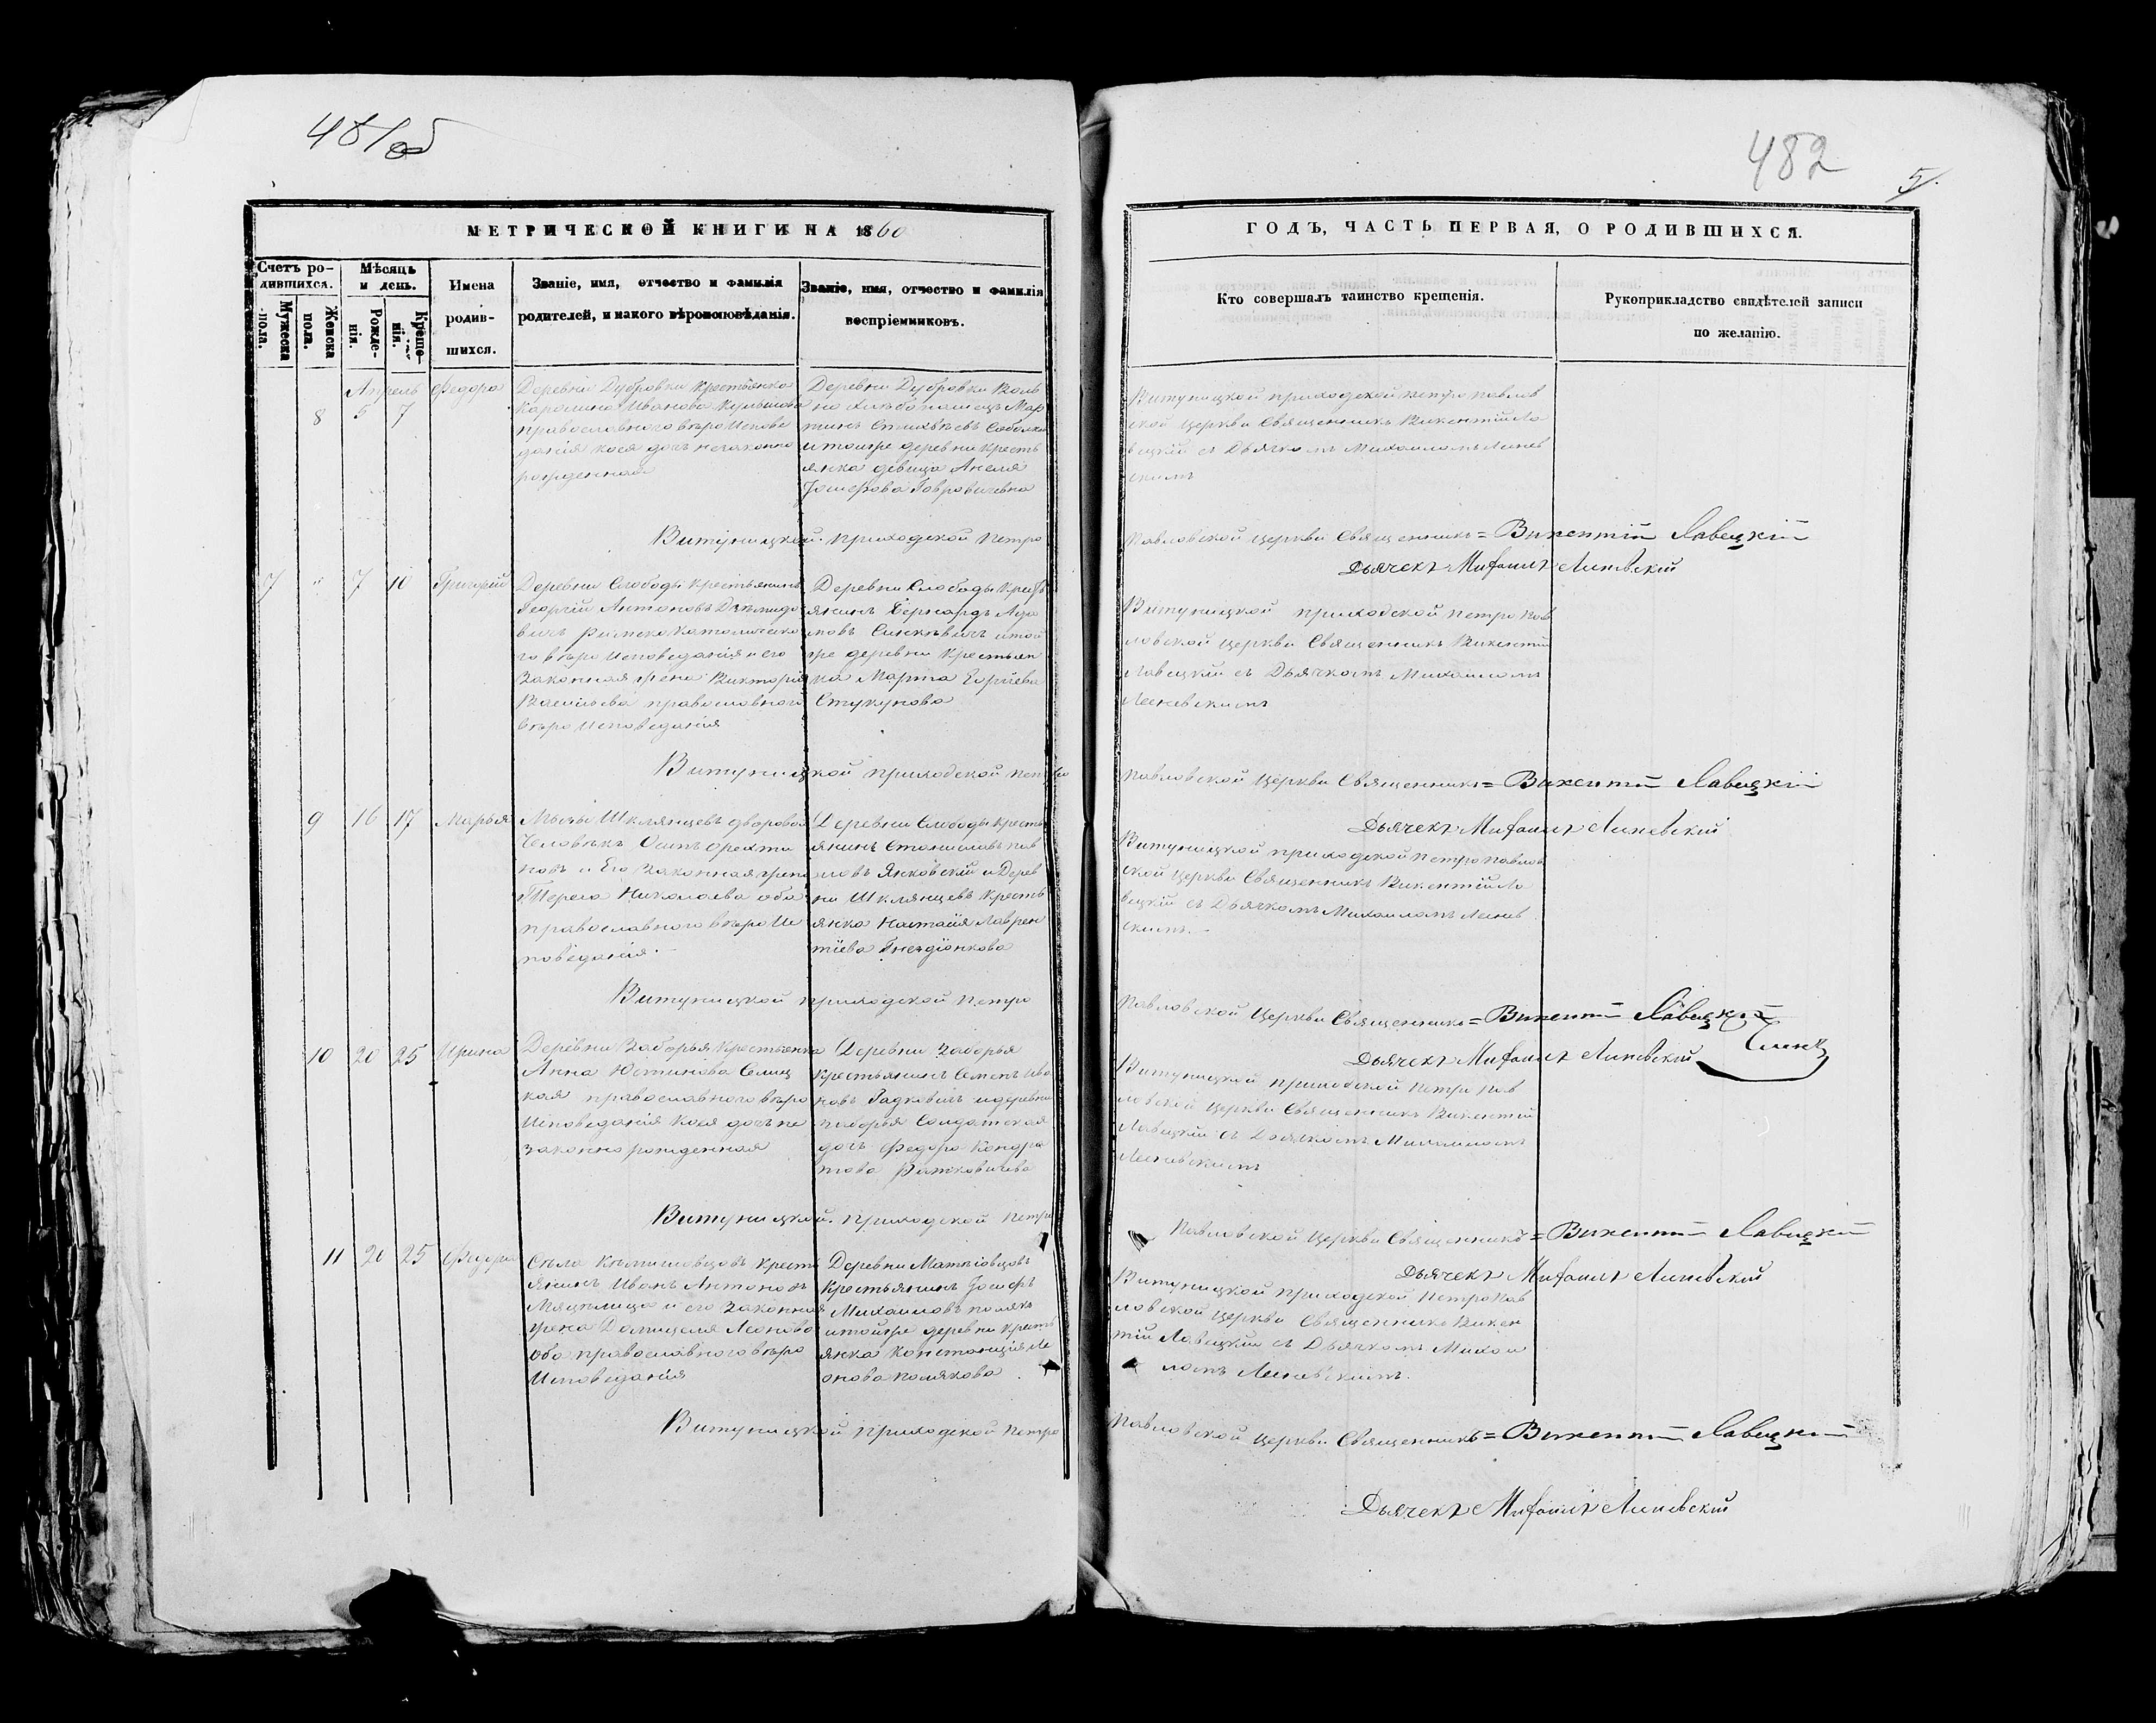 481об
482
5.
МЕТРИЧЕСКОЙ КНИГИ НА 1860
ГОДЪ, ЧАСТЬ ПЕРВАЯ, О РОДИВШИХСЯ.
Счетъ ро-
дившихся.
Мужеска
пола.
Женска
пола.
Мѣсяцъ
и день.
Рожде-
нія.
Креще-
нія.
Имена
родив-
шихся.
Званіе, имя, отчество и фамилія
родителей, и какого вѣроисповѣданія.
Званіе, имя, отчество и фамилія
воспріемниковъ.
Кто совершалъ таинство крещенія.
Рукоприкладство свидѣтелей записи
по желанію.
Апрель
8 5 7
Федора
Деревни Дубровки крестьянка
Каролина Иванова
православнаго вѣроиспове
данія коея дочь незаконно
рожденная
Деревни Дубровки Воль
но хлѣбопашецъ Мар
тинъ
и тойже деревни кресть
янка девица Анеля
Іосифова
Витуницкой приходской петро павлов
ской церкви Священникъ Викентій Ла
вецкій съ Дьячкомъ Михаиломъ Линев
скимъ
Витуницкой приходской Петро
Павловской церкви Священникъ = Викентій Лавецкій
Дьячекъ Михаилъ Линевскій
7 " 7 10
Григорій
Деревни Слободы крестьянинъ
Георгій Антоновъ
вичъ римско католическо
го вѣроисповеданія и его
законная жена Виктория
Васильева православного
вѣроисповеданія
Деревни Слободы крест
янинъ Бернардъ Ада
мовъ Синкевичъ и той
же деревни крестьян
ка Марта
Стукунова
Витуницкой приходской петро пав
ловской церкви Священникъ Викентій
Лавецкій съ Дьячкомъ Михаиломъ
Линевскимъ
Витуницкой приходской петро
Павловской церкви Священникъ = Викентій Лавецкій
Дьячекъ Михаилъ Линевскій
9 16 17
Марья
Мызы Шклянцевъ дворовой
Человѣкъ Осипъ
новъ и Его законная жена
Тереса Николаева оба
православнаго вѣроис
поведанія.
Деревни Слободы кресть
янинъ Станиславъ пав
ловъ Янковскій и Дерев
ни Шклянцевъ кресть
янка Настасія Лаврен
тіева Гнездіонкова
Витуницкой приходской петро павлов
ской церкви Священникъ Викентій Ла
вецкій съ Дьячкомъ Михаиломъ Линев
скимъ. -
Витуницкой приходской петро
Павловской церкви Священникъ = Викентій Лавецкій
Дьячекъ Михаилъ Линевскій
10 20 25
Ирина
Деревни Заборья крестьянка
Анна Юстинова
кая православнаго вѣро
исповеданія коея дочь не
законно рожденная
Деревни Заборья
крестьянинъ Семенъ Ива
новъ Гадковичъ и деревни
Заборья Солдатская
дочь Федора Кондра
това Ратковичева
Витуницкой приходской петро пав
ловской церкви Священникъ Викентій
Лавецкій съ Дьячкомъ Михаиломъ
Линевскимъ
Витуницкой приходской петро
Павловской церкви Священникъ = Викентій Лавецкій
Дьячекъ Михаилъ Линевскій
11 20 25
Федора
Села кресть
янинъ Иванъ Антоновъ
и его законная
жена Домицеля Леонова
оба православного вѣро
исповеданія
Деревни
крестьянинъ Іосифъ
Михаиловъ полякъ
и тойже деревни кресть
янка Констанція Ле
онова полякова
Витуницкой приходской петро пав
ловской церкви Священникъ Викен
тій Лавецкій съ Дьячкомъ Михаи
ломъ Линевскимъ.
Витуницкой приходской петро
Павловской церкви Священникъ = Викентій Лавецкій
Дьячекъ Михаилъ Линевскій